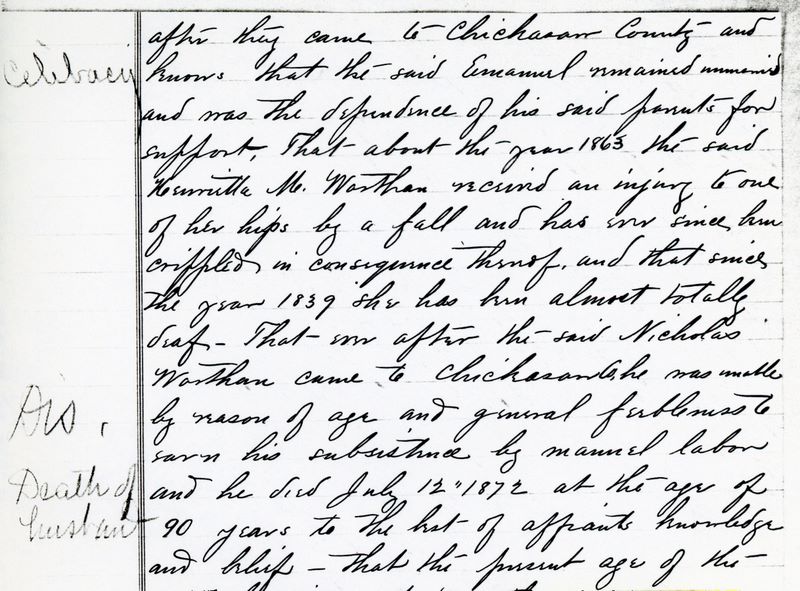 after they came to Chickasaw County and
Celibacy
knows that the said Emanuel remained unmarried
and was the dependence of his said parents for
support. That about the year 1863 the said
Henrietta M. Worthan received an injury to one
of her hips by a fall and has ever since been
crippled in consequence thereof. and that since
the year 1839 she has been almost totally
deaf - That ever after the said Nicholas
Worthan came to Chickasaw he was unable
Dis.
by reason of age and general feebleness to
earn his subsistence by manuel labor
Death of
and he died July 12" 1872 at the age of
husband
90 years to the best of affiants knowledge
and belief - That the present age of the